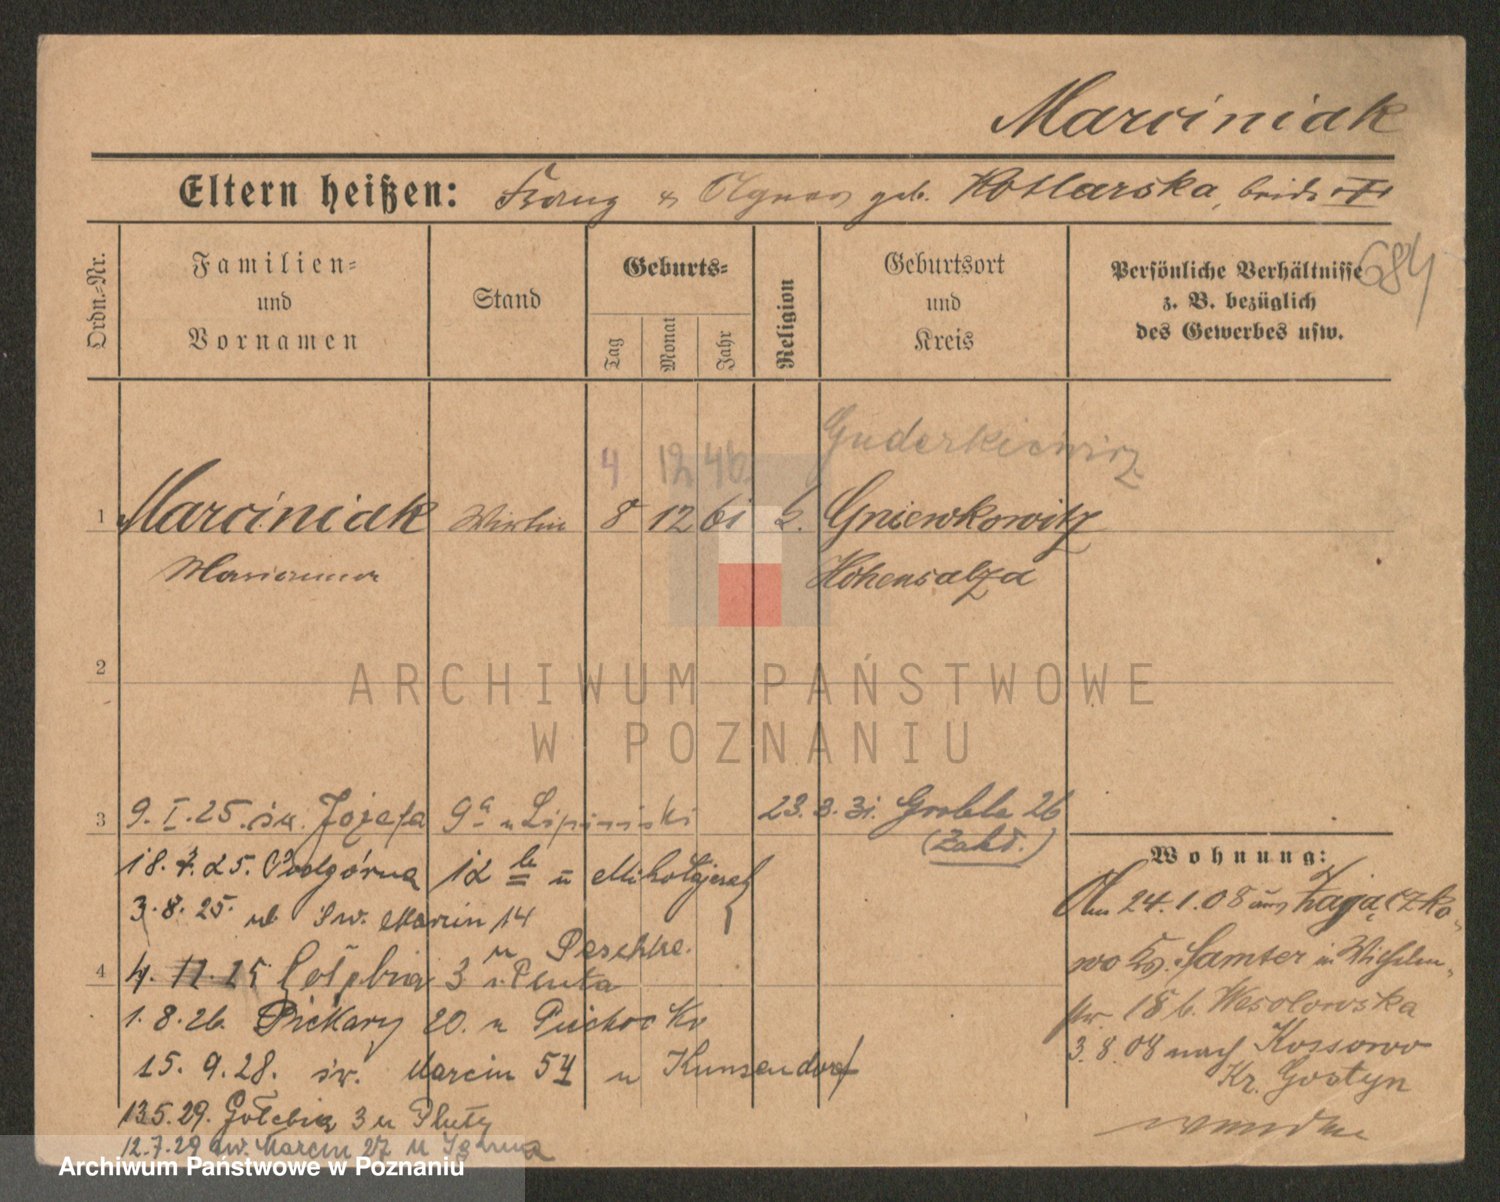 Marciniak
Eltern heißen: Franz u Agnes geb. Kotlarska, beide
684
Ordn.-Nr.
Familien-
und
Vornamen
Stand
Geburts-
Tag
Monat
Jahr
Religion
Geburtsort
und
Kreis
Persönliche Verhältnisse
z. B. bezüglich
des Gewerbes usw.
4 12 46 Guderkiewicz
1 Marciniak Wirtin 8 12 61 k. Gniewkowitz
Marianna Hohensalza
2
ARCHIWUM PAŃSTWOWE
W POZNANIU
3 9. I. 25. św. Józefa 9a u Lipiński 23. 3. 31. Grobla 26
(Zakł.)
18. 7. 25. Podgórna 12 u Mikołajczak
3. 8. 25. ul. Św. Marcin 14
u Peschke.
4 25 Gołębia 3 u Pluta
1. 8. 26. Piekary 20. u Piechocki
15. 9. 28. św. Marcin 54 u Kunzendorf
13.5.29. Gołębia 3 u Pluty
12.7.29 św. Marcin 27 u
Wohnung:
Am 24.1.08 aus Zajączko-
wo Kr. Samter in Wilhelm-
str. 18 b. Wesolowska
3.8.08 nach Kossowo
Kr. Gostyn
Archiwum Państwowe w Poznaniu